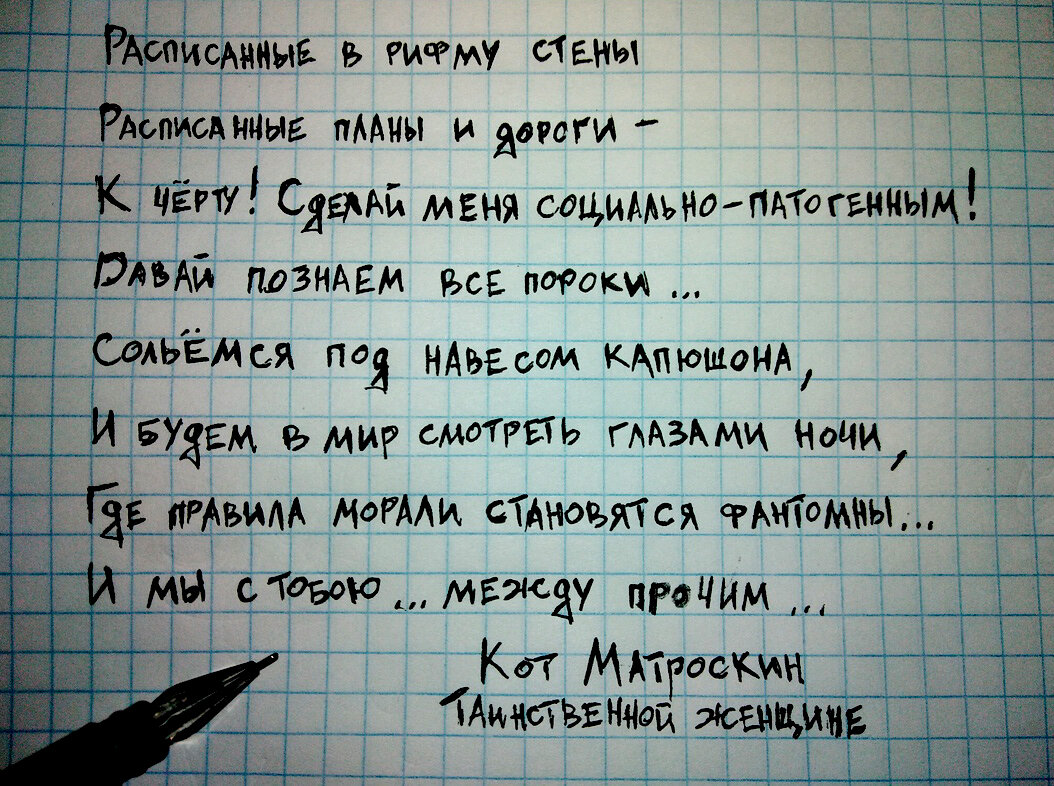 Расписанные в рифму стены
Расписанные планы и дороги –
К чёрту! Сделай меня социально-патогенным!
Давай познаем все пороки...
Сольёмся под навесом капюшона,
И будем в мир смотреть глазами ночи,
Где правила морали становятся фантомны...
И мы с тобою... между прочим...
Кот Матроскин
Таинственной женщине